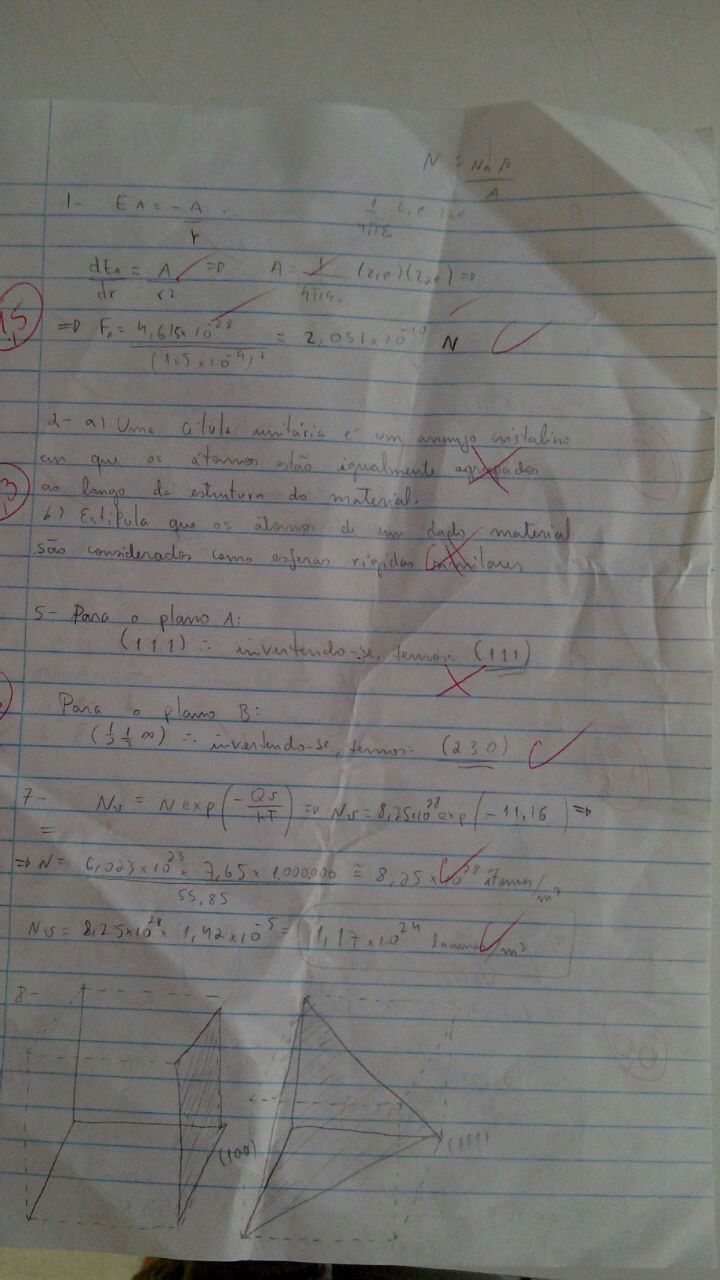 N = NA ρ / A
1- EA = - A / r
dEA / dr = A / r2 => A = 1 / 4πε0 (z1e)(z2e) =>
=> FA = 4,615x10^-28 / (1,5x10^-9)^2 = 2,051x10^-10 N
2- a) Uma célula unitária é um arranjo cristalino
em que os átomos estão igualmente agrupados
ao longo da estrutura do material.
b) Estipula que os átomos de um dado material
são considerados como esferas rígidas similares
5- Para o plano A:
(1 1 1) ∴ invertendo-se, temos: (111)
Para o plano B:
(1/2 1/3 ∞) ∴ invertendo-se, temos: (230)
7- Nv = N exp(-Qv/kT) => Nv = 8,25x10^28 exp(-11,16) =>
=> N = 6,023x10^23 x 7,65 x 1.000.000 / 55,85 ≅ 8,25 x 10^28 átomos/m³
Nv = 8,25x10^28 x 1,42x10^-5 = 1,17x10^24 lacunas/m³
8-
(100)
(111)